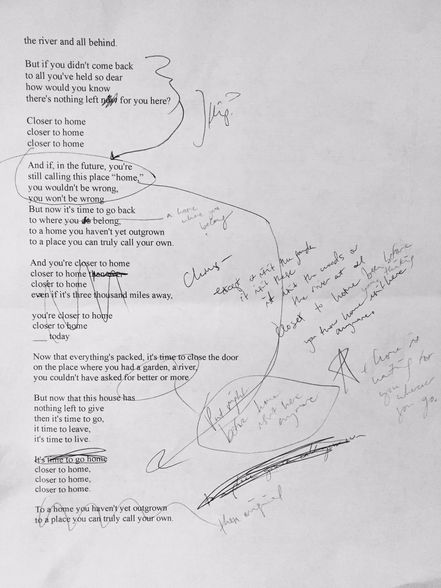 the river and all behind.
But if you didn't come back
to all you've held so dear
how would you know
there's nothing left for you here?
flip?
Closer to home
closer to home
closer to home
And if, in the future, you're
still calling this place "home,"
you wouldn't be wrong,
you won't be wrong
But now it's time to go back
to where you belong,
to a home you haven't yet outgrown
to a place you can truly call your own.
a home
where you
belong
And you're closer to home
closer to home
closer to home
even if it's three thousand miles away,
you're closer to home
closer to home
___ today
except it isn't the
it isn't these
it isn't the woods or
the river at all
closer to home
you
home
here
anymore
Now that everything's packed, it's time to close the door
on the place where you had a garden, a river,
you couldn't have asked for better or more
But now that this house has
nothing left to give
then it's time to go,
it time to leave,
it's time to live.
home
isn't here
anymore
+ home is
waiting for
you
wherever
you go.
It's time to go home
closer to home,
closer to home,
closer to home.
To a home you haven't yet outgrown
to a place you can truly call your own.
then original